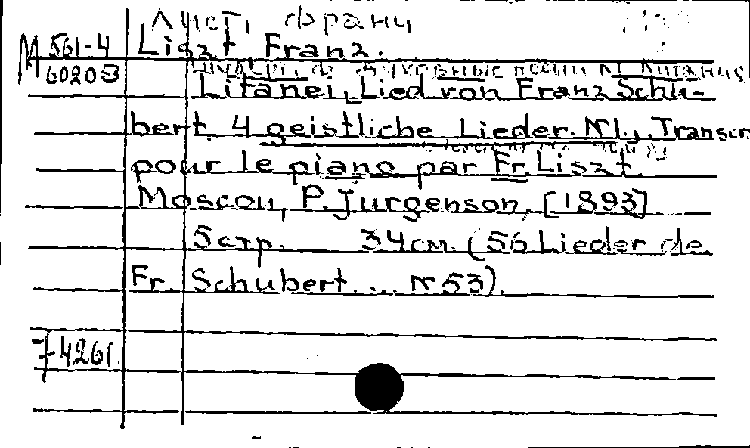 Лист, Франц
М 561-4
Liszt Franz.
60203
Litanei, Lied von Franz Schu-
bert, 4 geistliche Lieder. N1., Transcr
pour le piano par Fr. Liszt.
Moscou, P. Jurgenson, [1893]
5 стр. 34 см. (56 Lieder de
Fr. Schubert ... N 53).
7-4261